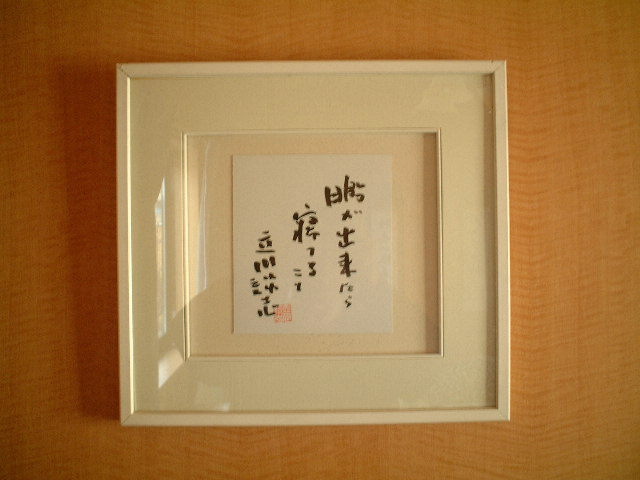 暇が出来たら
寝てること
立川談志